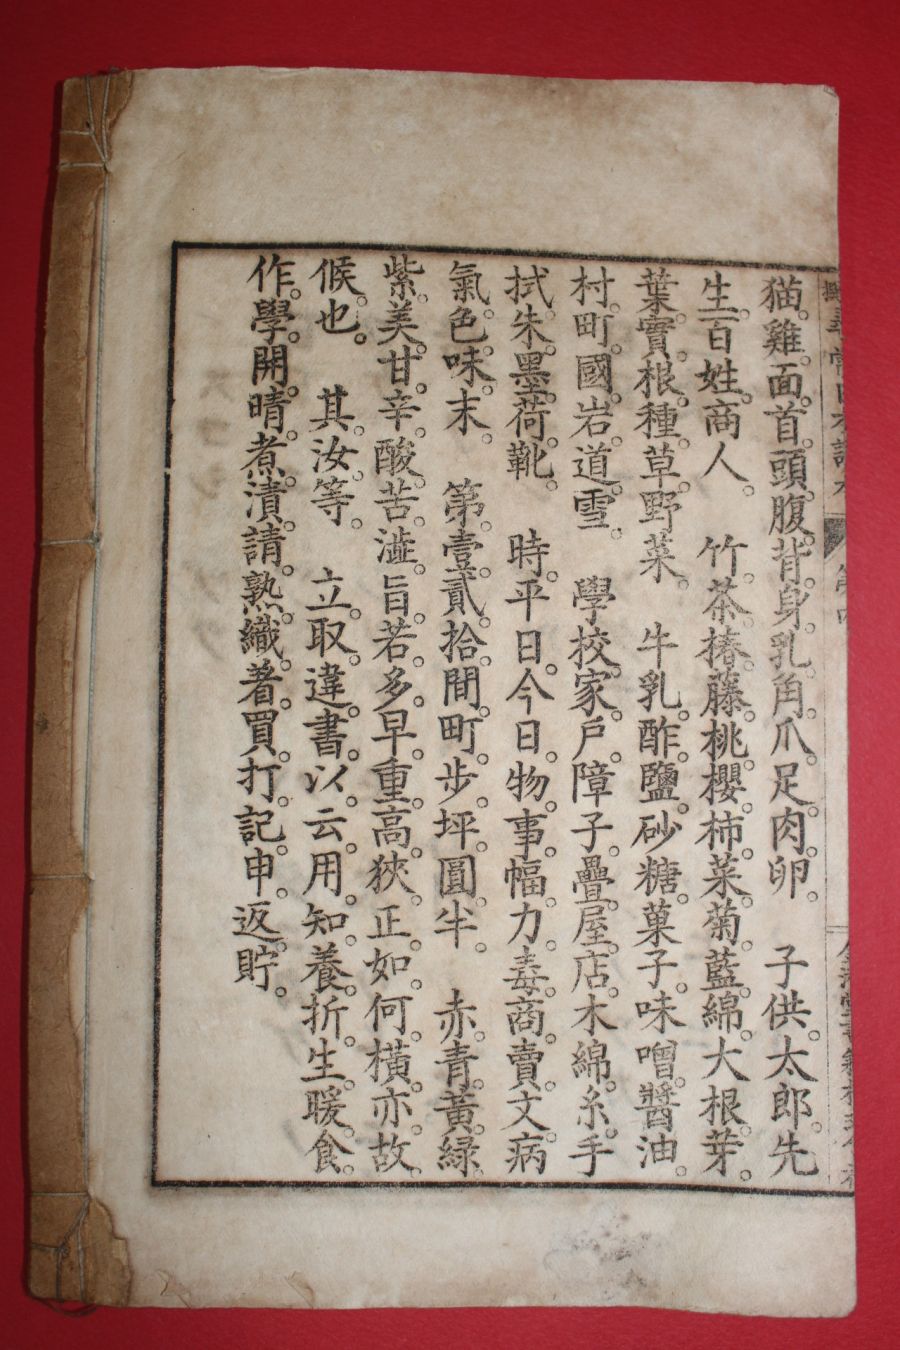 尋常日本讀本
猫。雞。面。首。頭。腹。背。身。乳。角。爪。足。肉。卵。　子供。太郎。先
生。百姓。商人。　竹。茶。椿。藤。桃。櫻。柿。菜。菊。藍。綿。大根。芽。
葉。實。根。種。草。野菜。　牛乳。酢。鹽。砂糖。菓子。味噌。醬油。
村。町。國。岩。道。雪。　學校。家。戶。障子。疊。屋。店。木綿。糸。手
拭。朱。墨。荷。靴。　時。平日。今日。物。事。幅。力。毒。商賣。文。病
氣。色。味。末。　第。壹。貳。拾。間。町。步。坪。圓。半。　赤。青。黃。綠。
紫。美。甘。辛。酸。苦。澁。旨。若。多。早。重。高。狹。正。如何。橫。亦。故。
候。也。　其。汝等。　立。取。違。書。以。云。用。知。養。折。生。暖。食。
作。學。開。晴。煮。漬。請。熟。織。着。買。打。記。申。返。貯。